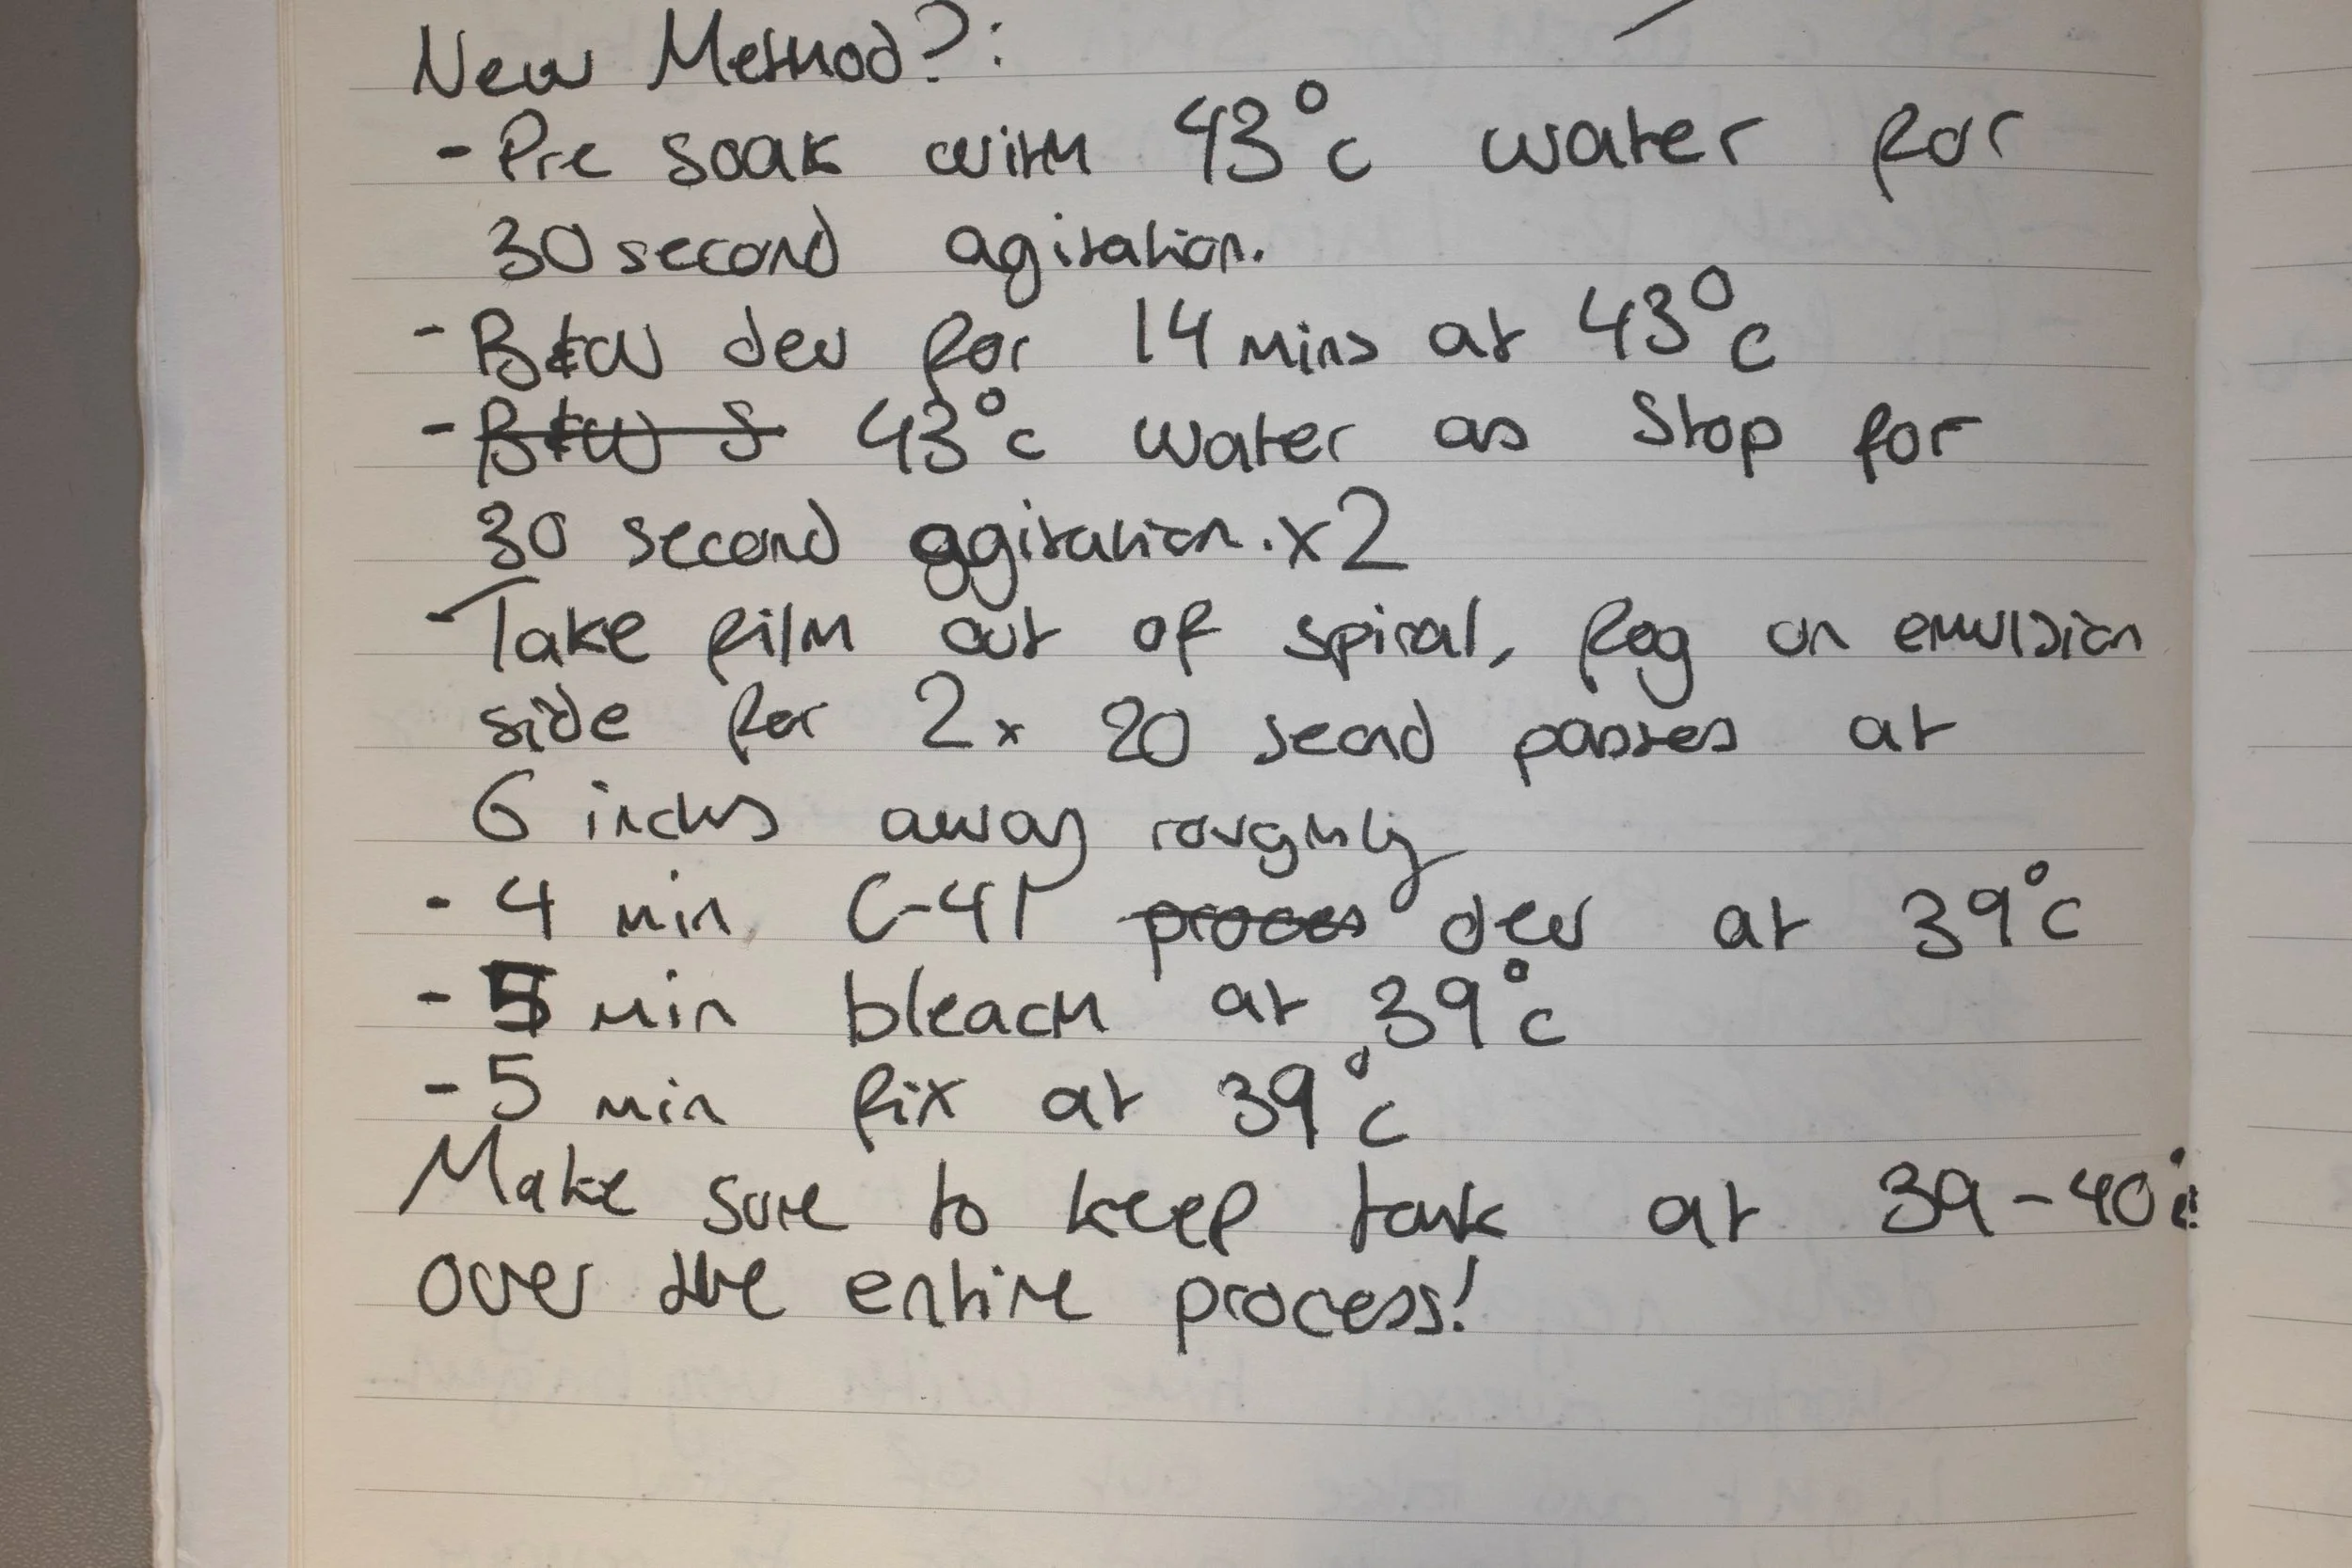 New Method?:
- Pre soak with 43°c water for
30 second agitation.
- B&W dev for 14 mins at 43°c
- B&W S 43°c water as stop for
30 second agitation. x2
- Take film out of spiral, fog on emulsion
side for 2x 20 second passes at
6 inches away roughly
- 4 min C-41 proces dev at 39°c
- 5 min bleach at 39°c
- 5 min fix at 39°c
Make sure to keep tank at 39-40°c
over the entire process!